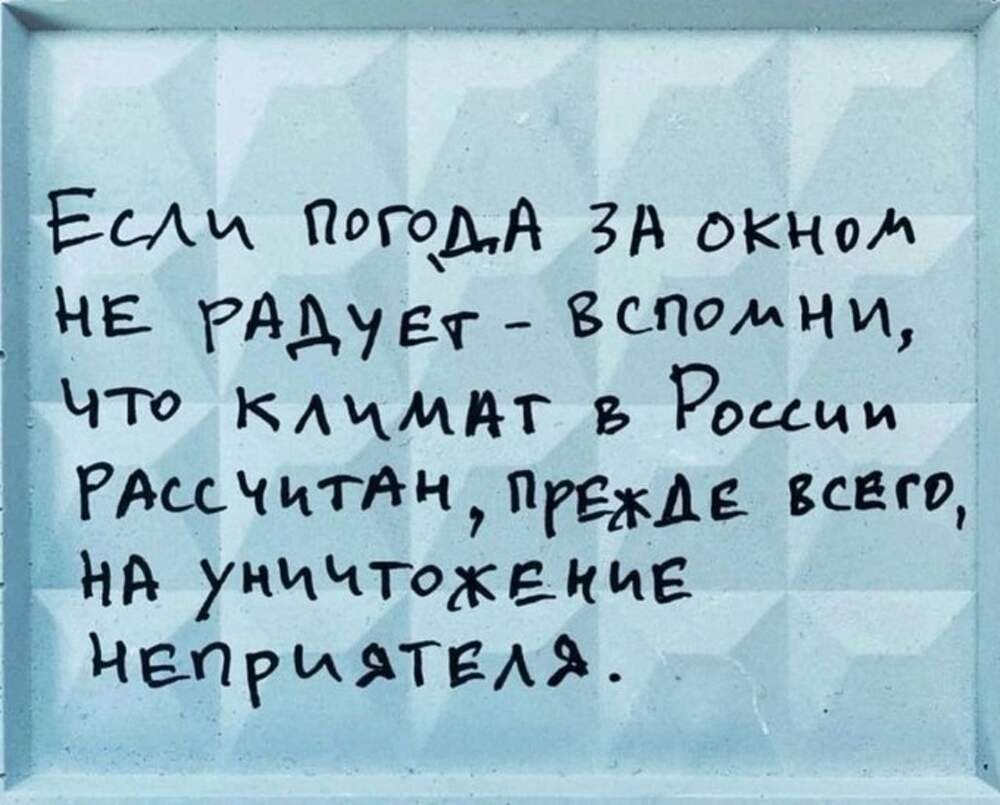 Если погода за окном
не радует - вспомни,
что климат в России
рассчитан, прежде всего,
на уничтожение
неприятеля.